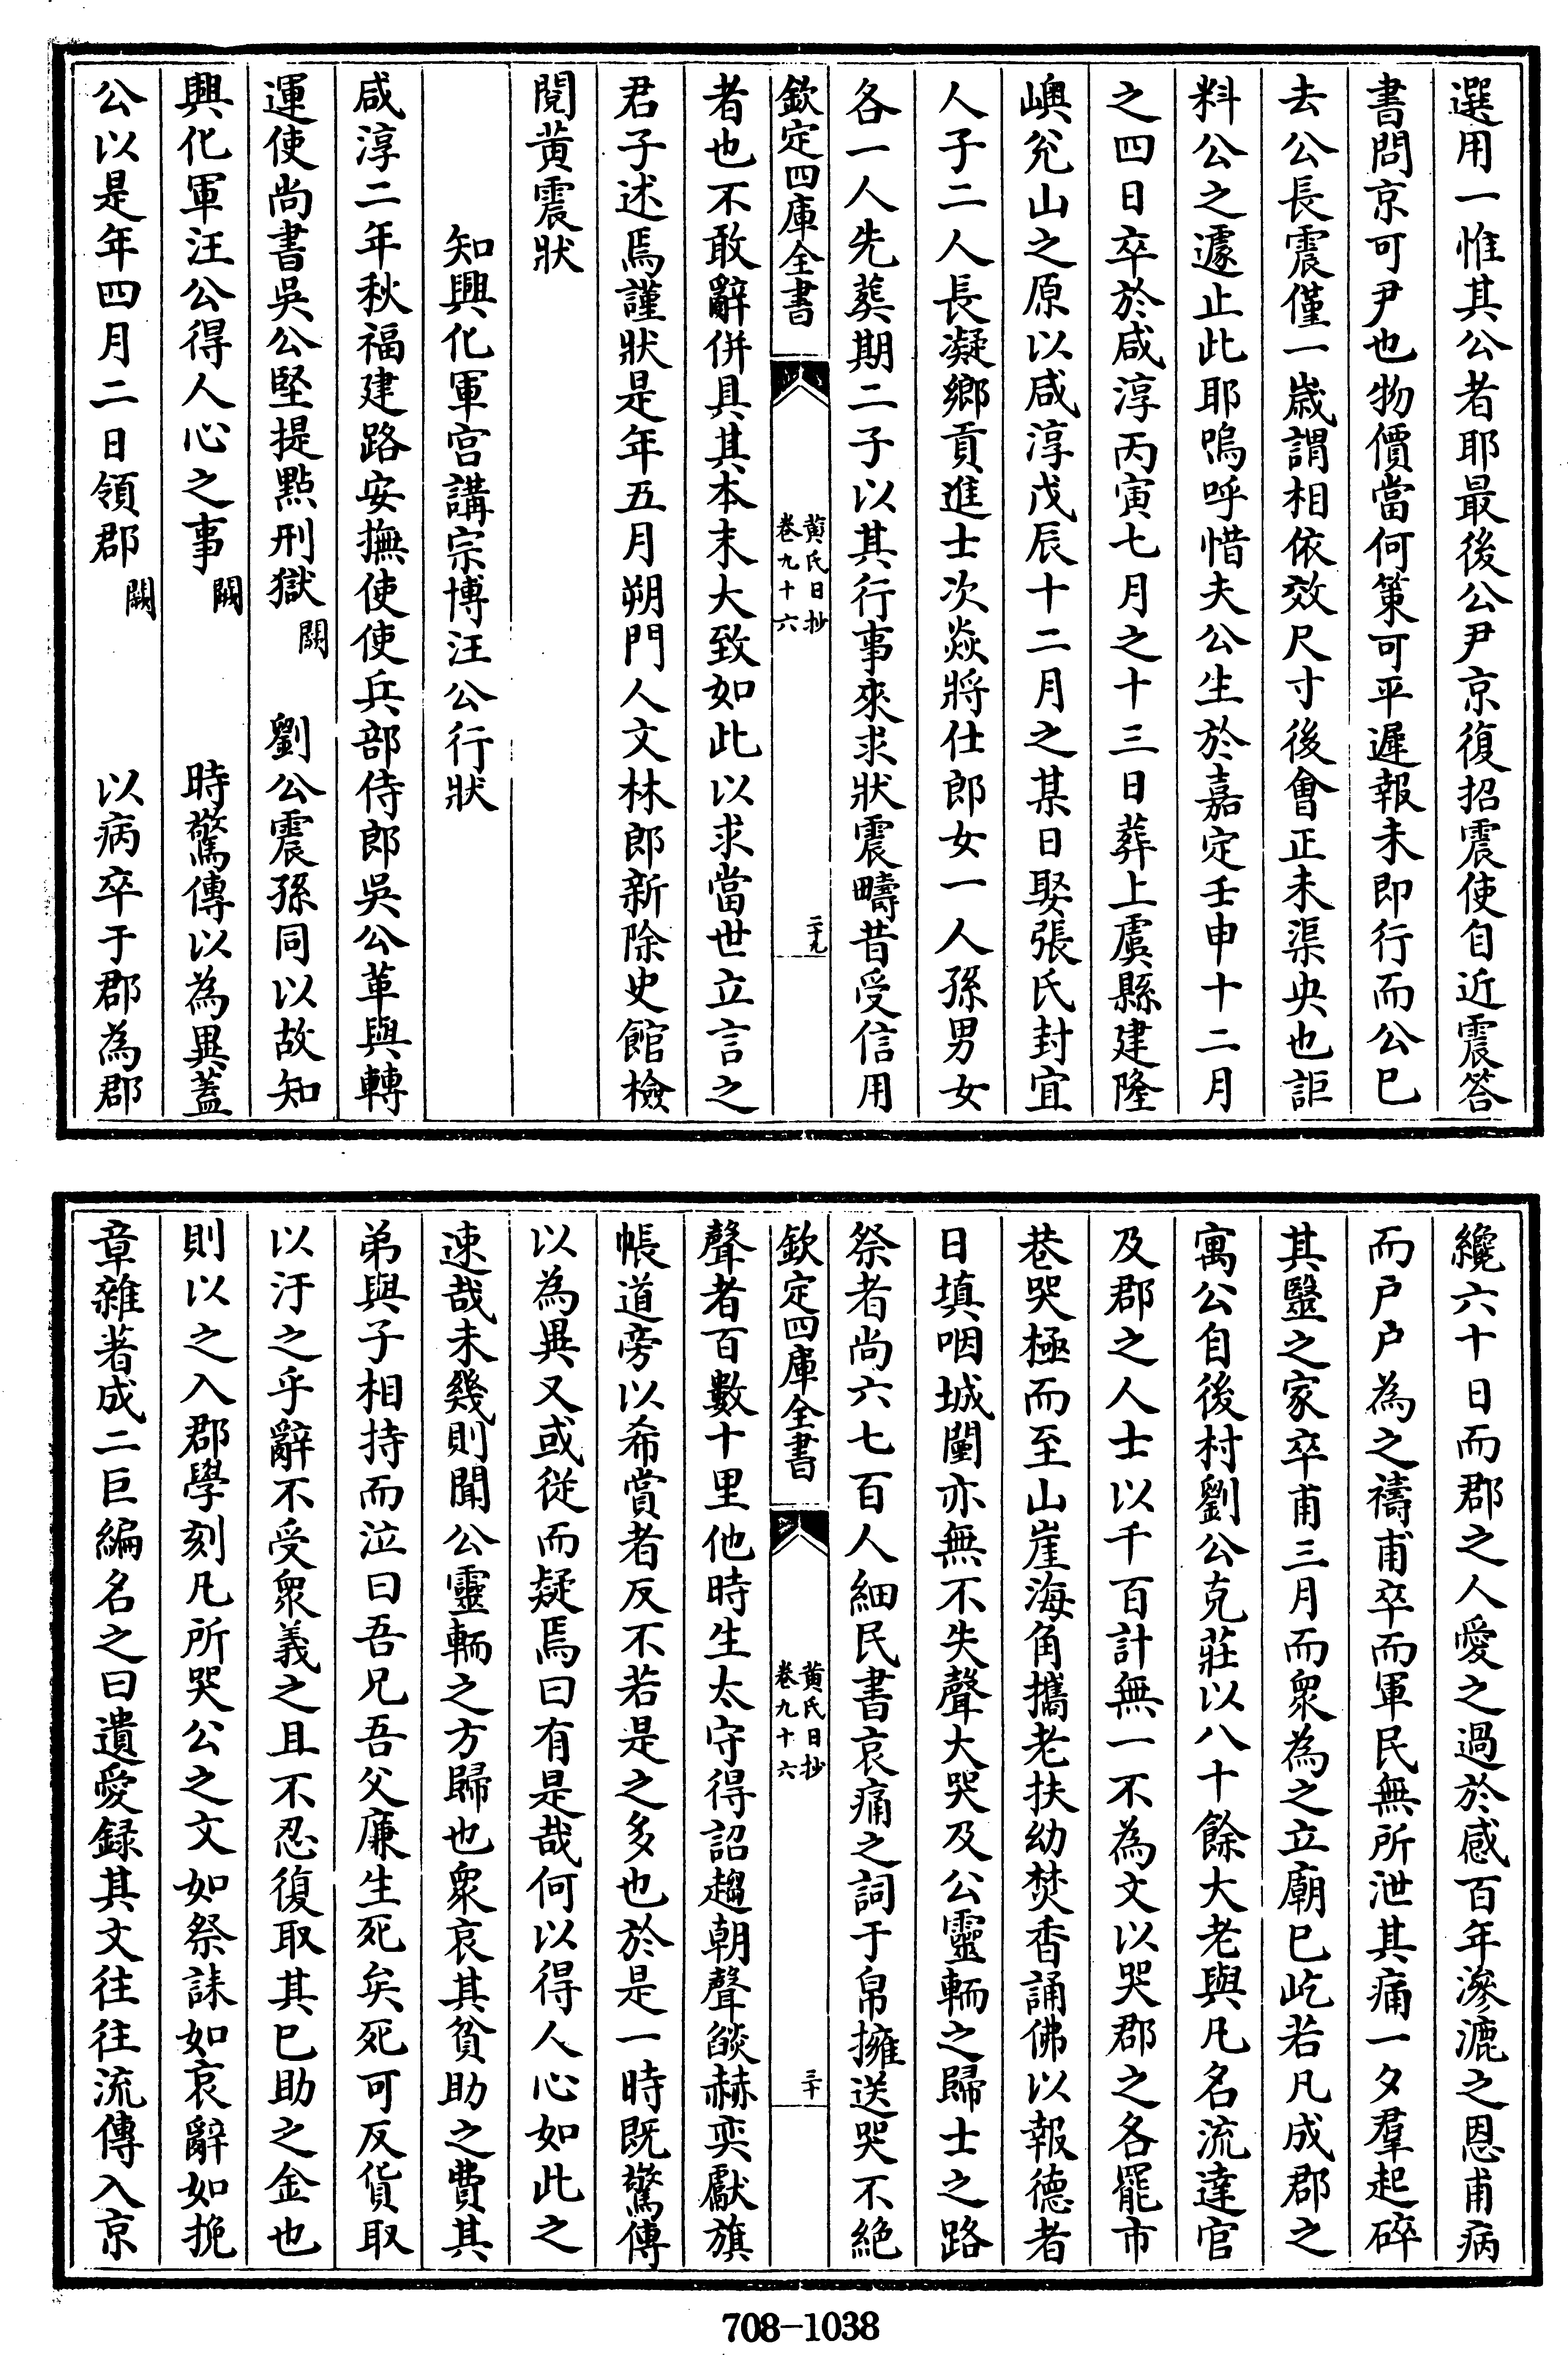 選用一惟其公者耶最後公尹京復招震使自近震答
書問京可尹也物價當何策可平遲報未即行而公已
去公長震僅一嵗謂相依效尺寸後會正未渠央也詎
料公之遽止此耶嗚呼惜夫公生於嘉定壬申十二月
之四日卒於咸淳丙寅七月之十三日葬上虞縣建隆
嶴兊山之原以咸淳戊辰十二月之某日娶張氏封宜
人子二人長凝鄉貢進士次焱將仕郎女一人孫男女
各一人先葬期二子以其行事來求狀震疇昔受信用
欽定四庫全書
黄氏日抄
卷九十六
二十九
者也不敢辭併具其本末大致如此以求當世立言之
君子述焉謹狀是年五月朔門人文林郎新除史館檢
閱黄震狀
知興化軍宫講宗博汪公行狀
咸淳二年秋福建路安撫使使兵部侍郎吳公革與轉
運使尚書吳公堅提點刑獄闕劉公震孫同以故知
興化軍汪公得人心之事闕時驚傳以為異蓋
公以是年四月二日領郡闕以病卒于郡為郡
纔六十日而郡之人愛之過於感百年滲漉之恩甫病
而户户為之禱甫卒而軍民無所泄其痛一夕羣起碎
其毉之家卒甫三月而衆為之立廟已屹若凡成郡之
寓公自後村劉公克莊以八十餘大老與凡名流達官
及郡之人士以千百計無一不為文以哭郡之各罷市
巷哭極而至山崖海角攜老扶幼焚香誦佛以報德者
日填咽城闉亦無不失聲大哭及公靈輀之歸士之路
祭者尚六七百人細民書哀痛之詞于帛擁送哭不絶
欽定四庫全書
黄氏日抄
卷九十六
三十
聲者百數十里他時生太守得詔趨朝聲燄赫奕獻旗
帳道旁以希賞者反不若是之多也於是一時既驚傳
以為異又或從而疑焉曰有是哉何以得人心如此之
速哉未幾則聞公靈輀之方歸也衆哀其貧助之費其
弟與子相持而泣曰吾兄吾父廉生死矣死可反貨取
以汙之乎辭不受衆義之且不忍復取其已助之金也
則以之入郡學刻凡所哭公之文如祭誄如哀辭如挽
章雜著成二巨編名之曰遺愛録其文往往流傳入京
708-1038